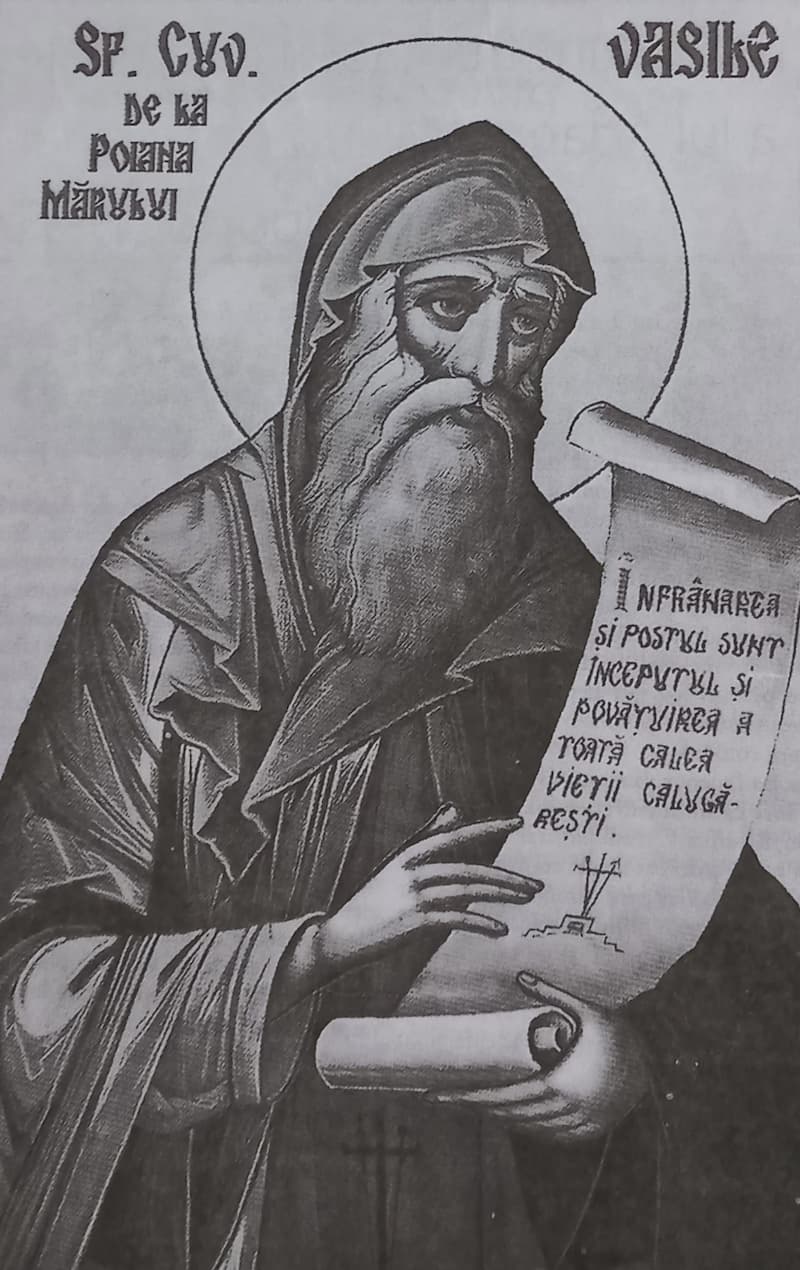 Sf. Cuv. Vasile
de la
Poiana
Mărului
Înfrânarea
și postul sunt
începutul și
povățuirea a
toată calea
vieții calugă-
rești.